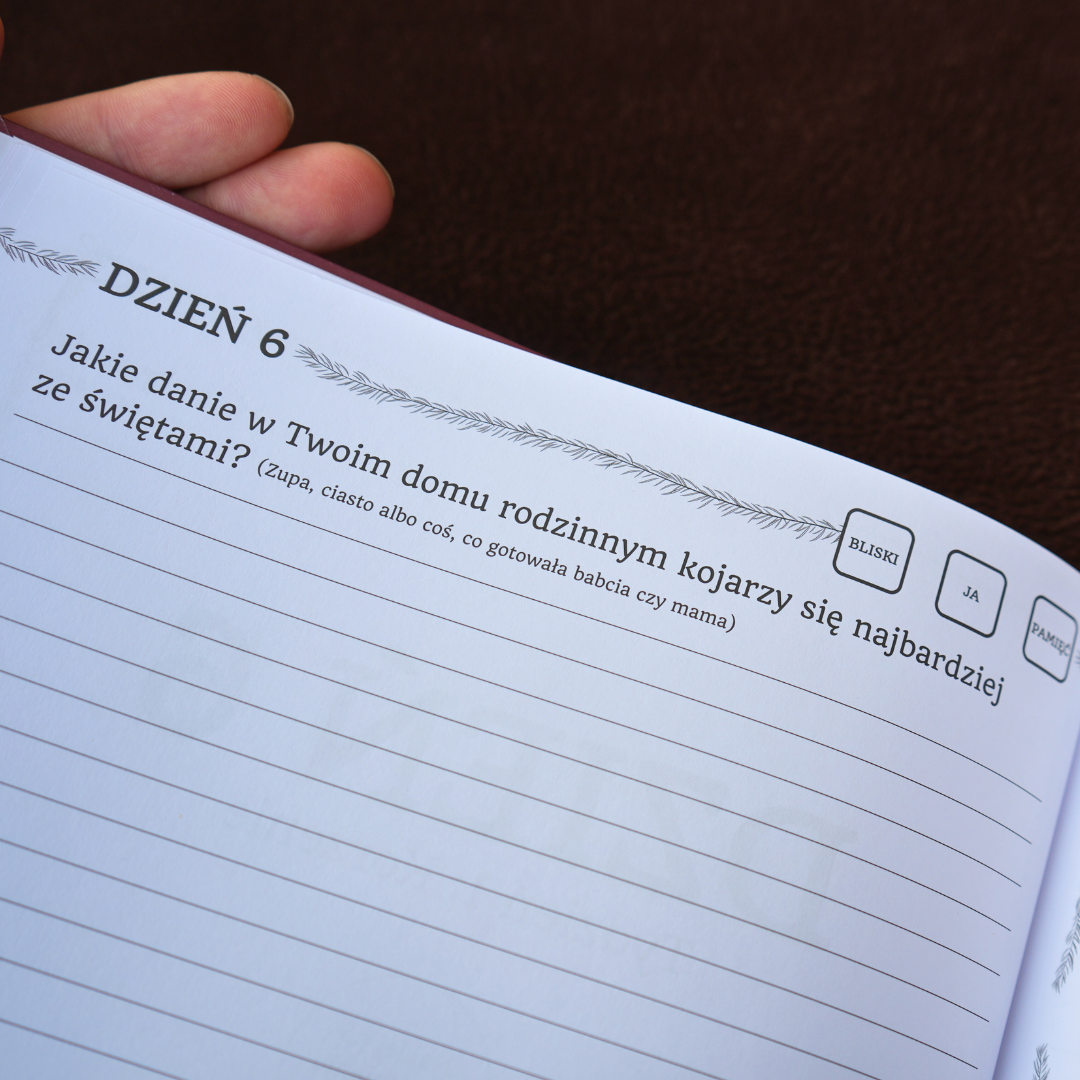 DZIEŃ 6
BLISKI
JA
PAMIĘĆ
Jakie danie w Twoim domu rodzinnym kojarzy się najbardziej
ze świętami? (Zupa, ciasto albo coś, co gotowała babcia czy mama)